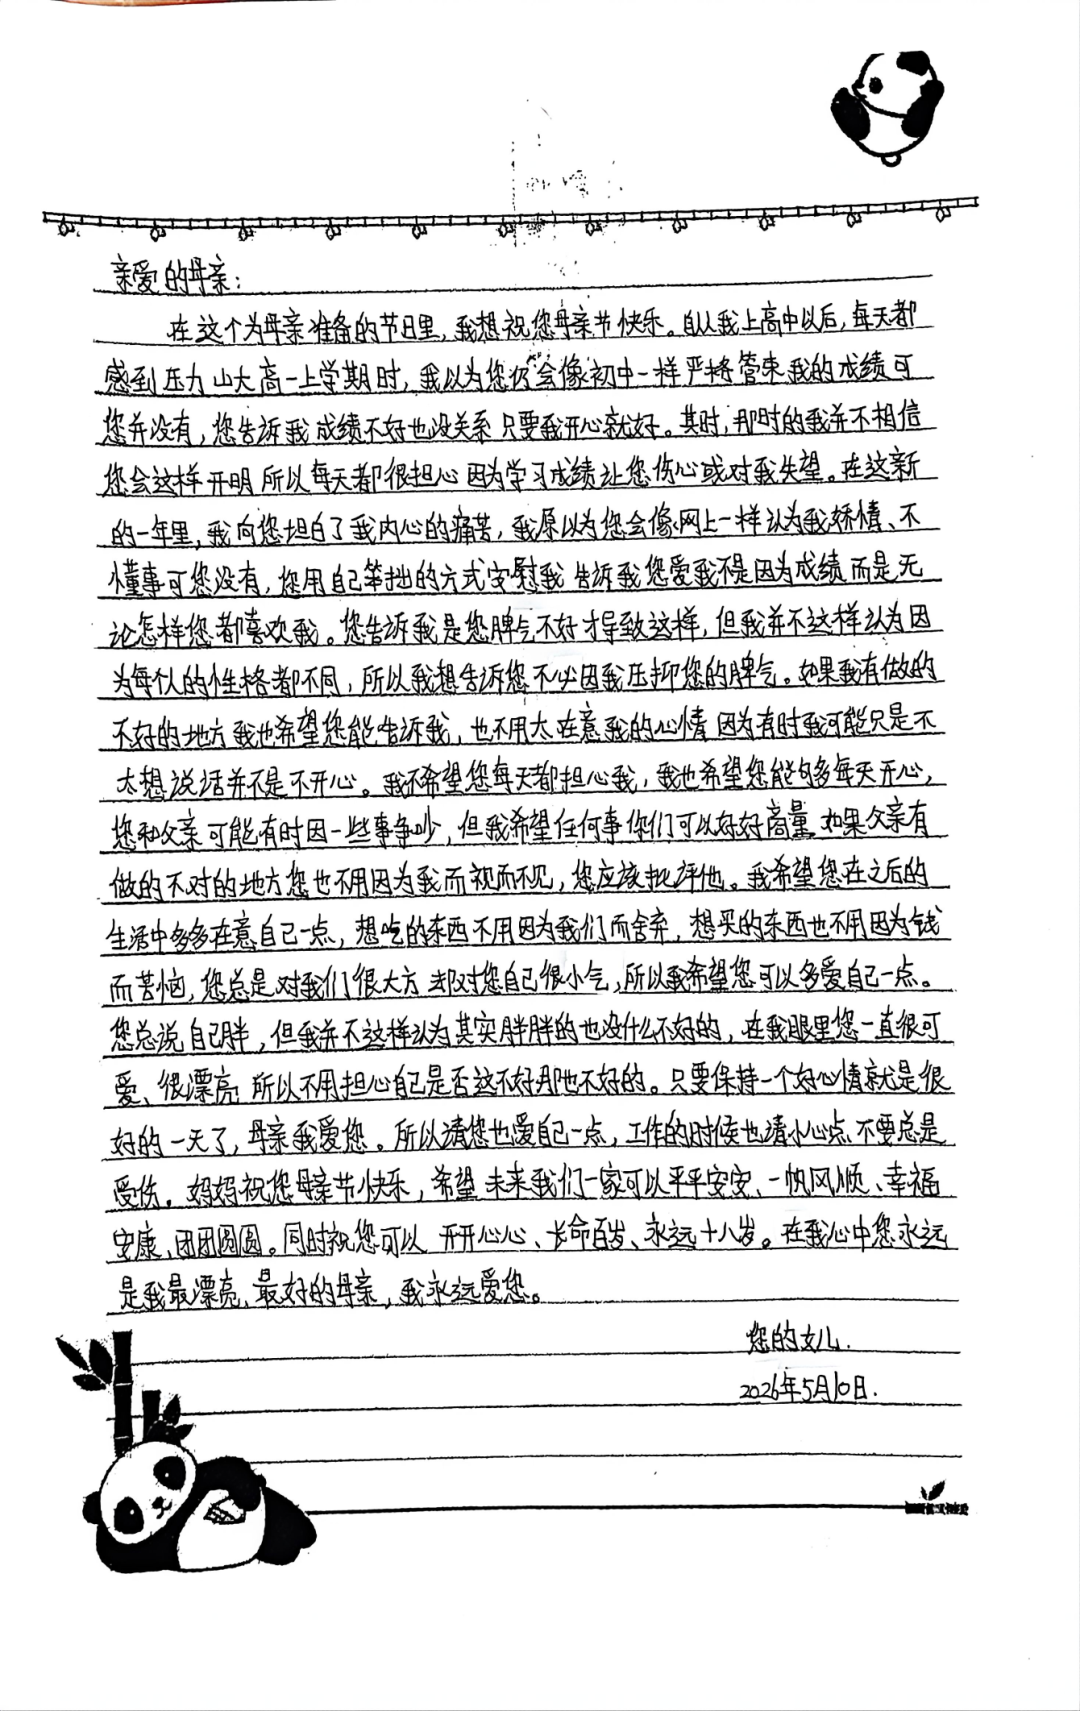 亲爱的母亲:
在这个为母亲准备的节日里,我想祝您母亲节快乐。自从我上高中以后,每天都
感到压力山大高一上学期时,我以为您仍会像初中一样严格管束我的成绩可
您并没有,您告诉我成绩不好也没关系只要我开心就好。其时,那时的我并不相信
您会这样开明所以每天都很担心因为学习成绩让您伤心或对我失望。在这新
的一年里,我向您坦白了我内心的痛苦,我原以为您会像网上一样认为我矫情、不
懂事可您没有,您用自己笨拙的方式安慰我告诉我您爱我不是因为成绩而是无
论怎样您都喜欢我。您告诉我是您脾气不好才导致这样,但我并不这样认为因
为每个人的性格都不同,所以我想告诉您不必因我压抑您的脾气。如果我有做的
不好的地方我也希望您能告诉我,也不用太在意我的心情因为有时我可能只是不
太想说话并不是不开心。我不希望您每天都担心我,我也希望您能够多每天开心,
您和父亲可能有时因一些事争吵,但我希望任何事你们可以好好商量如果父亲有
做的不对的地方您也不用因为我而视而不见,您应该批评他。我希望您在之后的
生活中多多在意自己一点,想吃的东西不用因为我们而舍弃,想买的东西也不用因为钱
而苦恼,您总是对我们很大方却对您自己很小气,所以我希望您可以多爱自己一点。
您总说自己胖,但我并不这样认为其实胖胖的也没什么不好的,在我眼里您一直很可
爱、很漂亮所以不用担心自己是否这不好那也不好的。只要保持一个好心情就是很
好的一天了,母亲我爱您。所以请您也爱自己一点,工作的时候也请小心点不要总是
受伤。妈妈祝您母亲节快乐,希望未来我们一家可以平平安安、一帆风顺、幸福
安康、团团圆圆。同时祝您可以开开心心、长命百岁、永远十八岁。在我心中您永远
是我最漂亮、最好的母亲,我永远爱您。
您的女儿.
2026年5月10日.